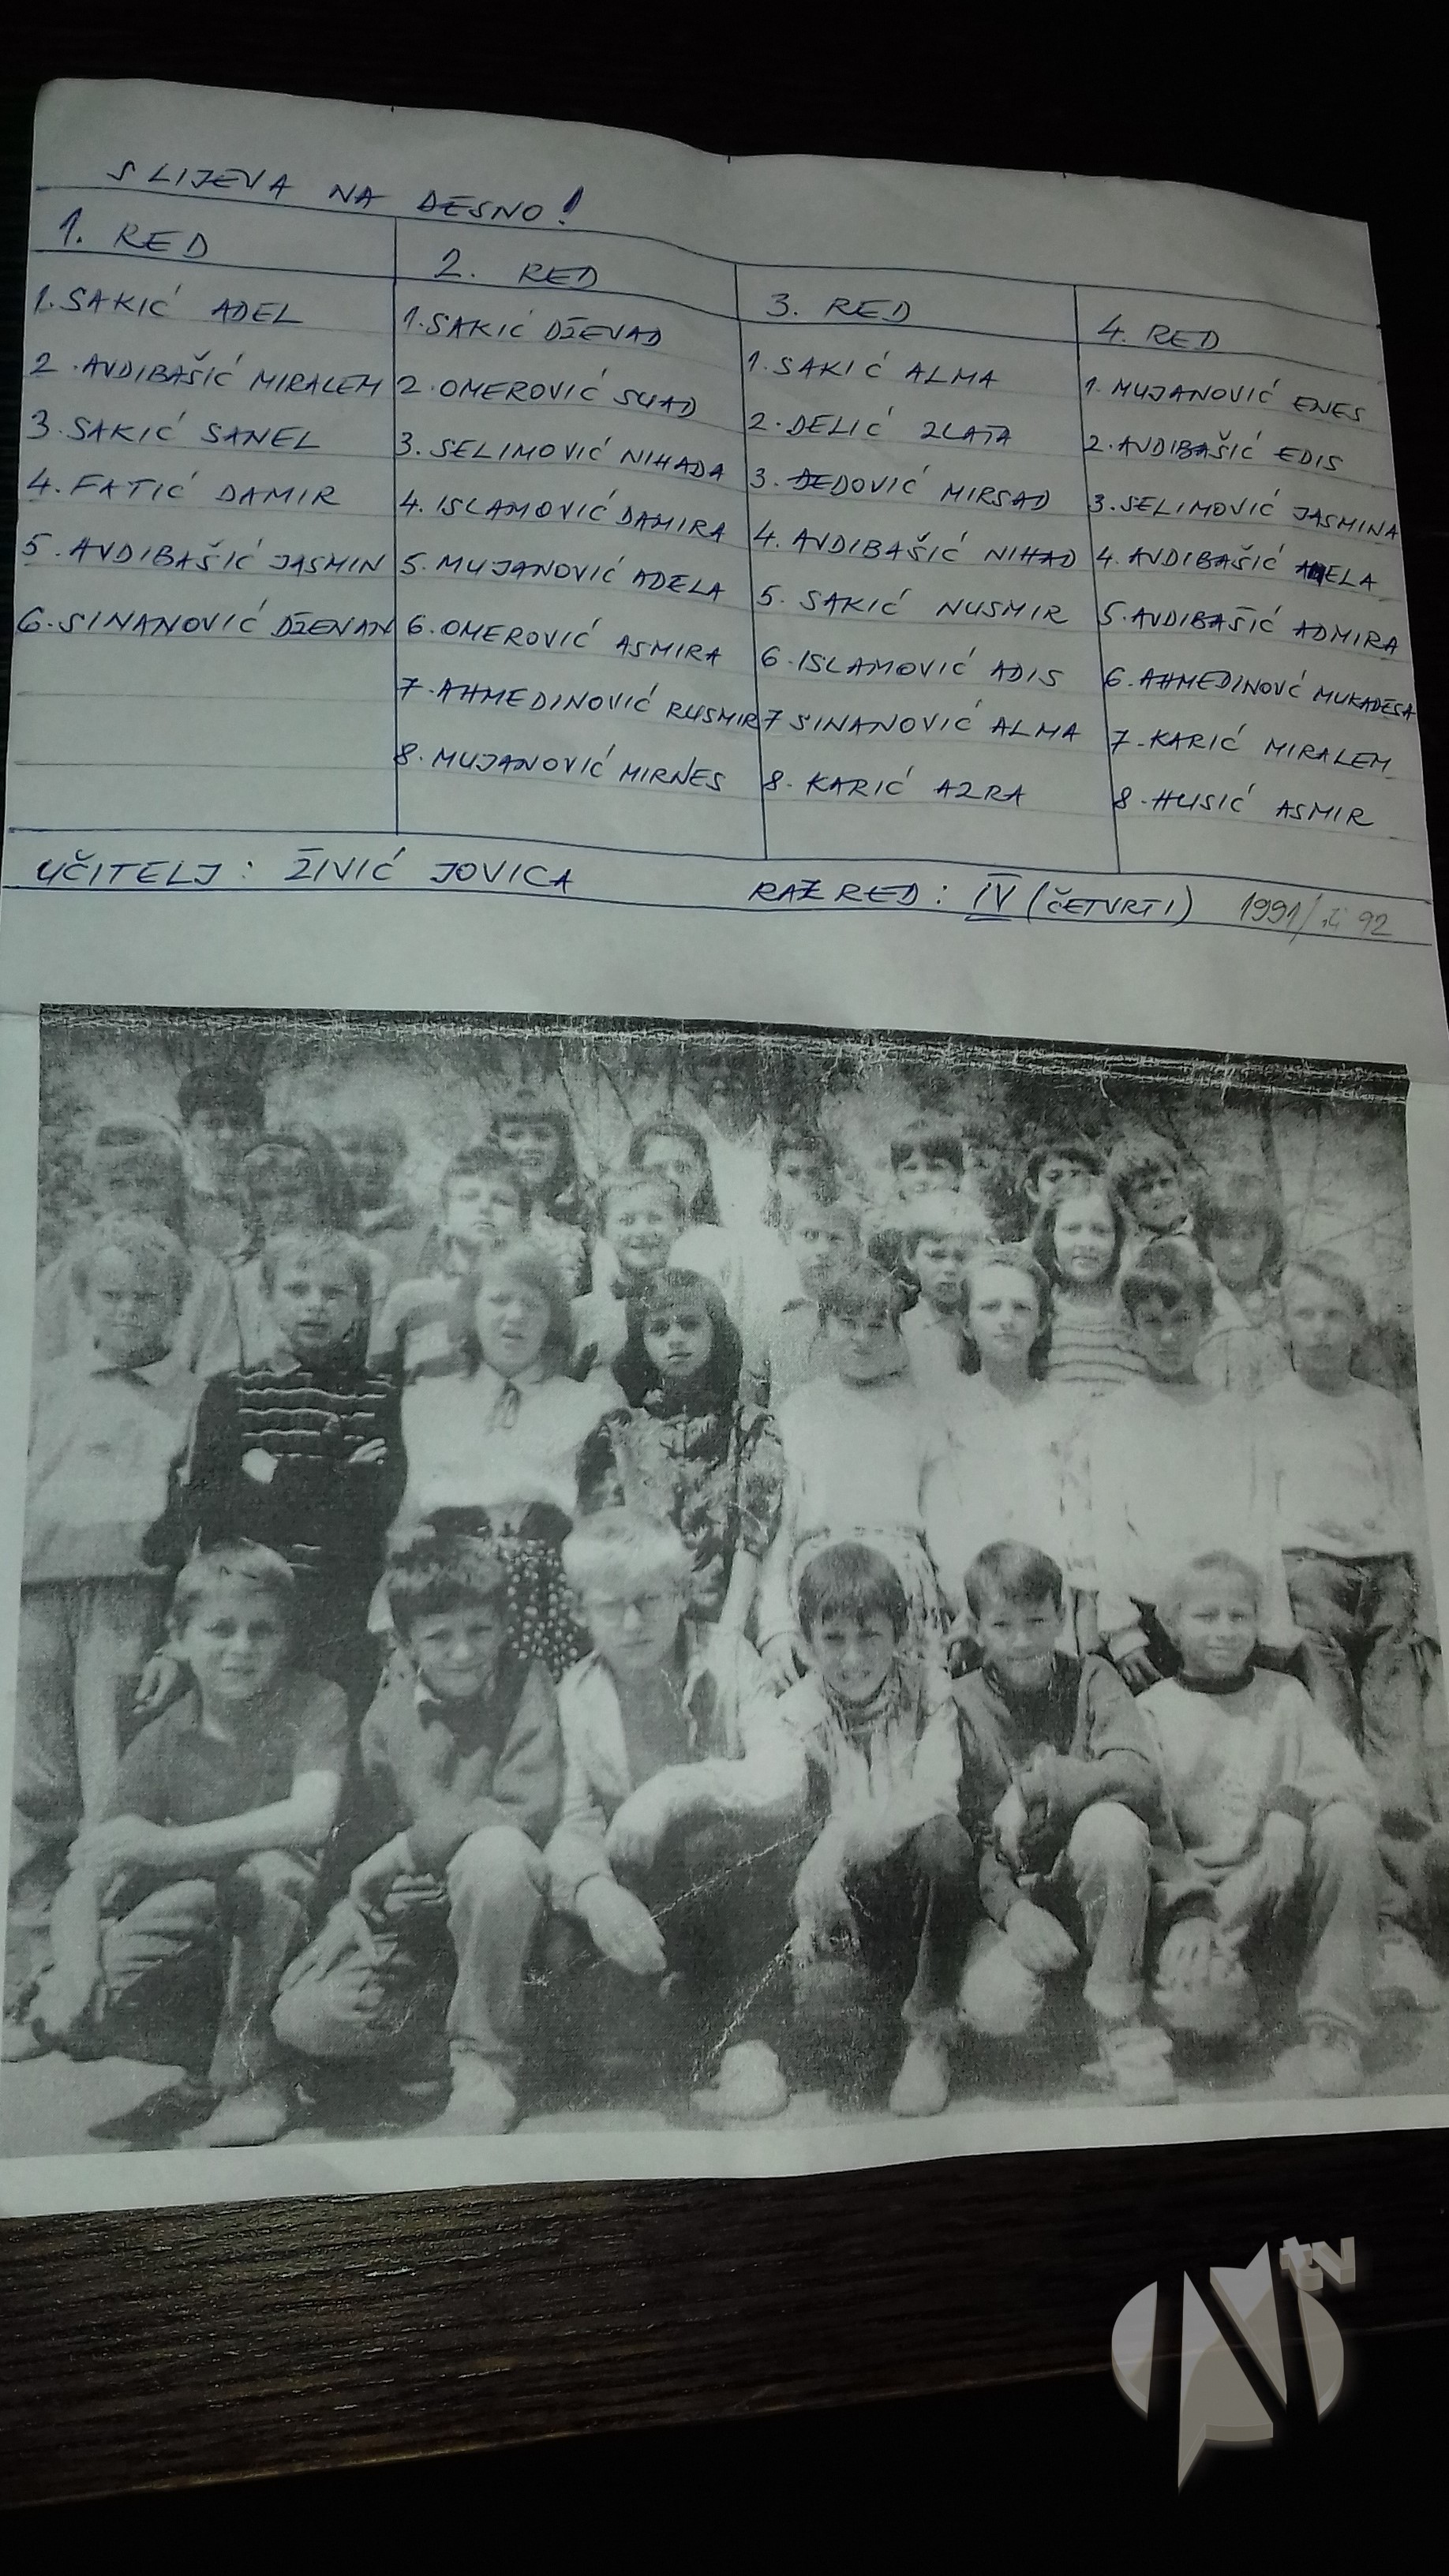 S LIJEVA NA DESNO!
1. RED
1. SAKIĆ ADEL
2. AVDIBAŠIĆ MIRALEM
3. SAKIĆ SANEL
4. FATIĆ DAMIR
5. AVDIBAŠIĆ JASMIN
6. SINANOVIĆ DŽENAN
2. RED
1. SAKIĆ DŽEVAD
2. OMEROVIĆ SUAD
3. SELIMOVIĆ NIHADA
4. ISLAMOVIĆ DAMIRA
5. MUJANOVIĆ ADELA
6. OMEROVIĆ ASMIRA
7. AHMEDINOVIĆ RUSMIR
8. MUJANOVIĆ MIRNES
3. RED
1. SAKIĆ ALMA
2. DELIĆ ZLATA
3. DEDOVIĆ MIRSAD
4. AVDIBAŠIĆ NIHAD
5. SAKIĆ NUSMIR
6. ISLAMOVIĆ ADIS
7 SINANOVIĆ ALMA
8. KARIĆ AZRA
4. RED
1. MUJANOVIĆ ENES
2. AVDIBAŠIĆ EDIS
3. SELIMOVIĆ JASMINA
4. AVDIBAŠIĆ
5. AVDIBAŠIĆ ADMIRA
6. AHMEDINOVĆ MUKADESA
7. KARIĆ MIRALEM
8. HUSIĆ ASMIR
UČITELJ: ŽIVIĆ JOVICA
RAZRED: IV (ČETVRTI) 1991/ 92
tv